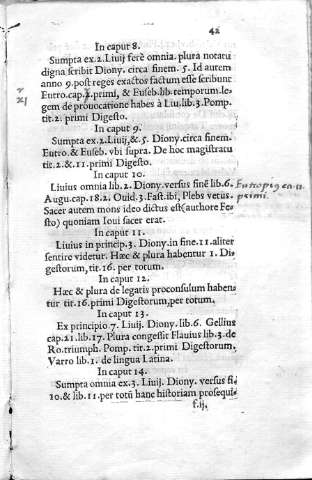 42
In caput 8.
Sumpta ex.2. Liuij ferè omnia. plura notatu
digna scribit Diony. circa finem. 5. Id autem
anno 9. post reges exactos factum esse scribunt
Eutro. cap. primi, & Euseb. lib. temporum. le-
gem de prouocatione habes à Liu. lib. 3. Pomp.
tit. 2. primi Digesto.
In caput 9.
Sumpta ex.2. Liuij, & .5. Diony. circa finem.
Eutro. & Euseb. vbi supra. De hoc magistratu
tit. 2. & .11. primi Digesto.
In caput 10.
Liuius omnia lib. 2. Diony. versus finē lib. 6.
Augu. cap. 18. 2. Ouid. 3. Fast. ibi, Plebs vetus.
primi.
Sacer autem mons ideo dictus est (authore Fe-
sto) quoniam Ioui sacer erat.
In caput 11.
Liuius in princip. 3. Diony. in fine. 11. aliter
sentire videtur. Hæc & plura habentur 1. Di-
gestorum, tit. 16. per totum.
In caput 12.
Hæc & plura de legatis proconsulum haben
tur tit. 16. primi Digestorum, per totum.
In caput 13.
Ex principio. 7. Liuij. Diony. lib. 6. Gellius
cap. 21. lib. 17. Plura congessit Flauius lib. 3. de
Ro. triumph. Pomp. tit. 2. primi Digestorum.
Varro lib. 1. de lingua Latina.
In caput 14.
Sumpta omnia ex. 3. Liuij. Diony. versus fi.
10. & lib. 11. per totū hanc historiam prosequi-
f. ij.